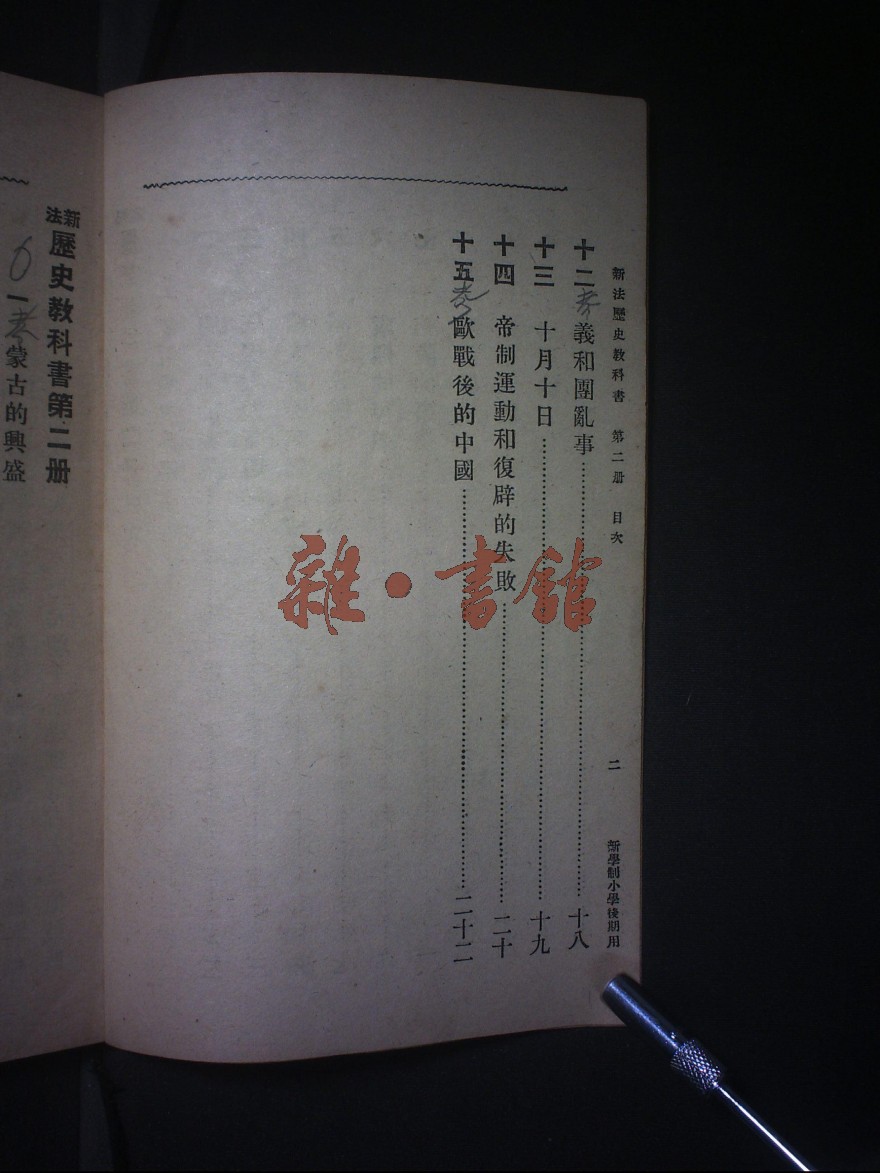 新法歷史教科書 第二册 目次 二 新學制小學後期用
十二 義和團亂事 十八
十三 十月十日 十九
十四 帝制運動和復辟的失敗 二十
十五 歐戰後的中國 二十二
新法歷史教科書第二册
一 蒙古的興盛
雜·書館